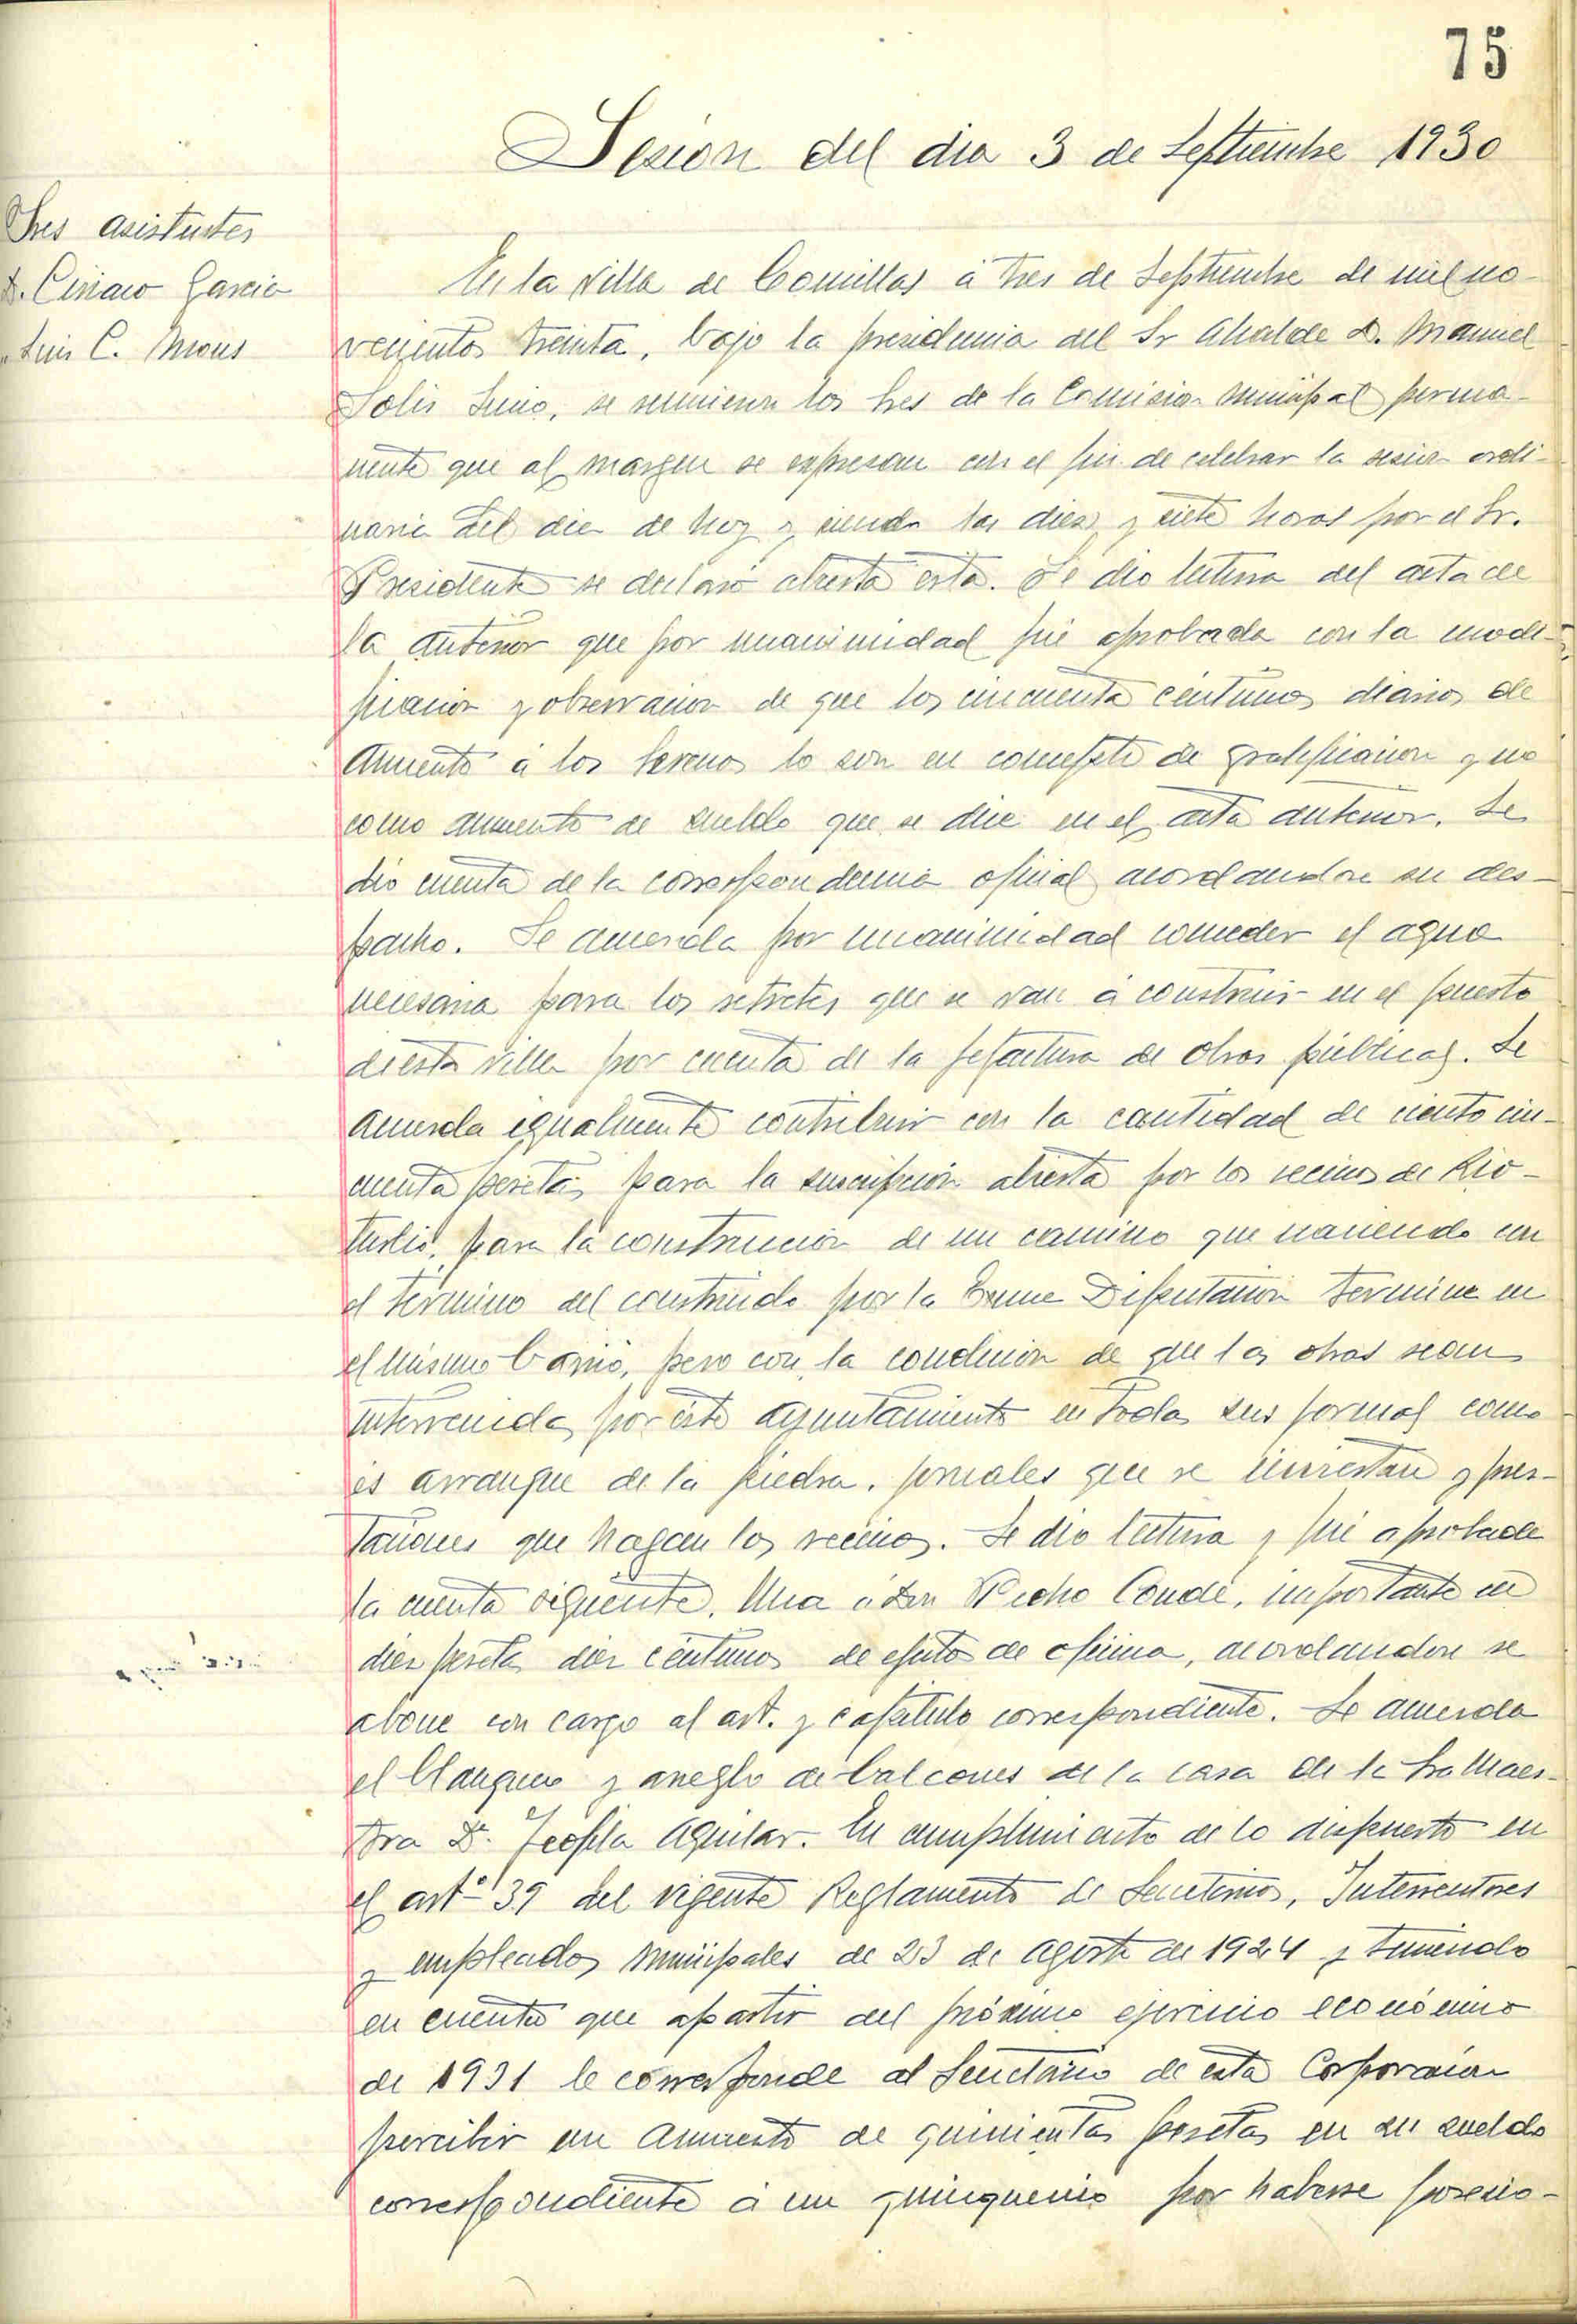 75
Sesion del dia 3 de Septiembre 1930
Sres asistentes
D. Ciriaco Garcia
" Luis C. Mons
En la Villa de Comillas á tres de Septiembre de mil no-
vecientos treinta, bajo la presidencia del Sr Alcalde D. Manuel
Solis se reunieron los Sres de la Comision Municipal perma-
nente que al margen se expresan con el fin de celebrar la sesion ordi-
naria del dia de hoy y siendo las diez y siete horas por el Sr.
Presidente se declaró abierta esta. Se dio lectura del acta de
la anterior que por unanimidad fué aprobada con la modi-
ficacion y observacion de que los cincuenta centimos diarios de
aumento á los serenos lo son en concepto de gratificacion y no
como aumento de sueldo que se dice en el acta anterior. Se
dio cuenta de la correspondencia oficial acordandose su des-
pacho. Se acuerda por unanimidad conceder el agua
necesaria para los retretes que se van á construir en el puerto
de esta villa por cuenta de la Jefactura de obras públicas. Se
acuerda igualmente contribuir con la cantidad de ciento cin-
cuenta pesetas para la suscripción abierta por los vecinos de Rio-
turbio, para la construccion de un camino que naciendo en
el término del construido por la Excma Diputacion termine en
el mismo barrio, pero con la condicion de que las obras sean
intervenidas por este Ayuntamiento en todas sus formas como
es arranque de la piedra, jornales que se inviertan y pres-
taciones que hagan los vecinos. Se dio lectura y fué aprobada
la cuenta siguiente. Una á Don Pedro Conde, importante en
diez pesetas diez centimos de efectos de oficina, acordandose se
abone con cargo al art. y capitulo correspondiente. Se acuerda
el blanqueo y arreglo de balcones de la casa de la Sra Maes-
tra Dª. Teofila Aguilar. En cumplimiento de lo dispuesto en
el artº 39 del vigente Reglamento de Secretarios, Interventores
y empleados Municipales de 23 de Agosto de 1924 y teniendo
en cuenta que apartir del próximo ejercicio económico
de 1931 le corresponde al Secretario de esta Corporacion
percibir un aumento de quinientas pesetas en su sueldo
correspondiente á un quinquenio por haberse posesio-